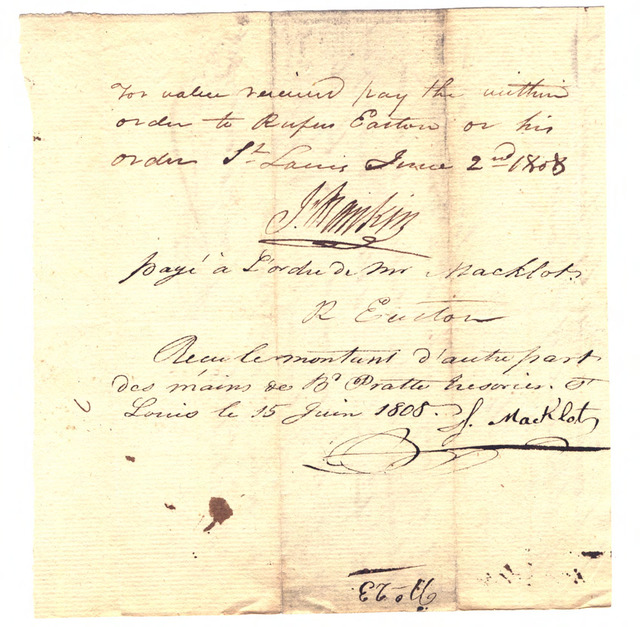 For value received pay the within
order to Rufus Easton or his
order St. Louis June 2nd 1808
Js Rankin
payé à L'ordre de Mr Macklot
R Easton
Recu le montant d'autre part
des mains de Bd Pratte tresorier. St
Louis le 15 Juin 1808. J. Macklot
No. 23